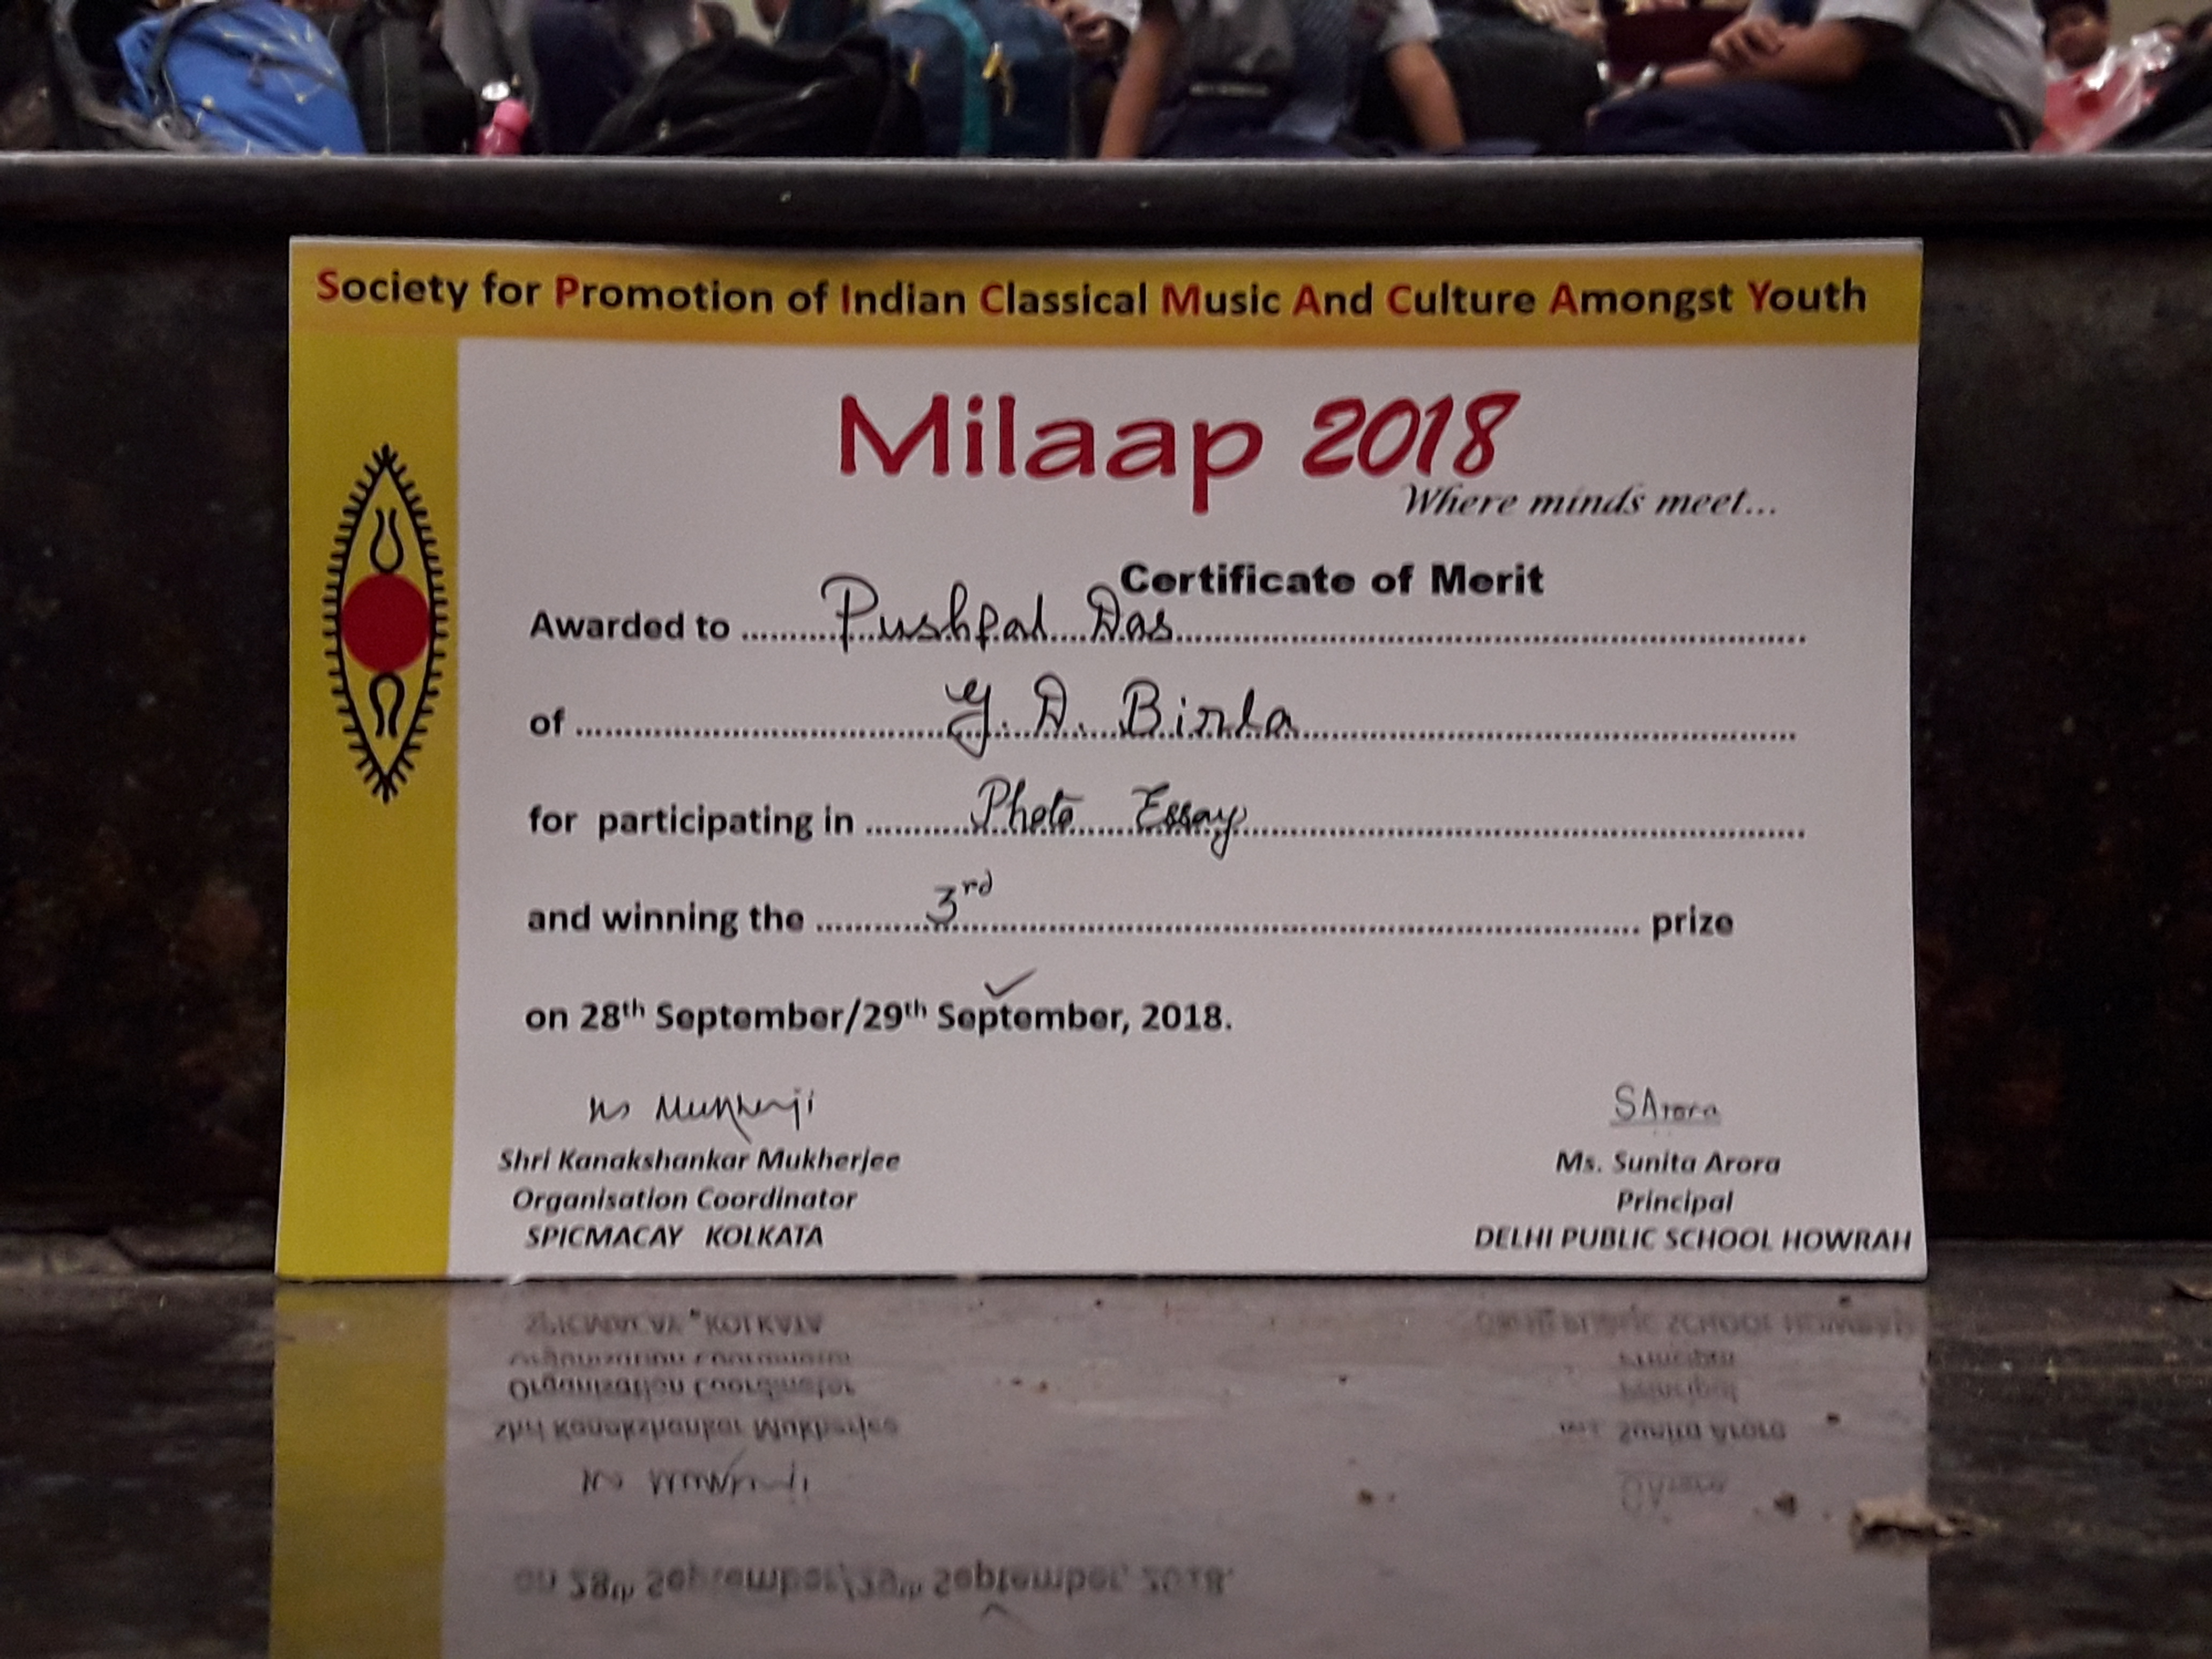 Society for Promotion of Indian Classical Music And Culture Amongst Youth
Milaap 2018
Where minds meet...
Certificate of Merit
Awarded to ........... Pushpal Das ...........
of ........... G. D. Birla ...........
for participating in ........... Photo Essay ...........
and winning the ........... 3rd ........... prize
on 28th September/29th September, 2018.
Mukherji
SArora
Shri Kanakshankar Mukherjee
Ms. Sunita Arora
Organisation Coordinator
Principal
SPICMACAY KOLKATA
DELHI PUBLIC SCHOOL HOWRAH